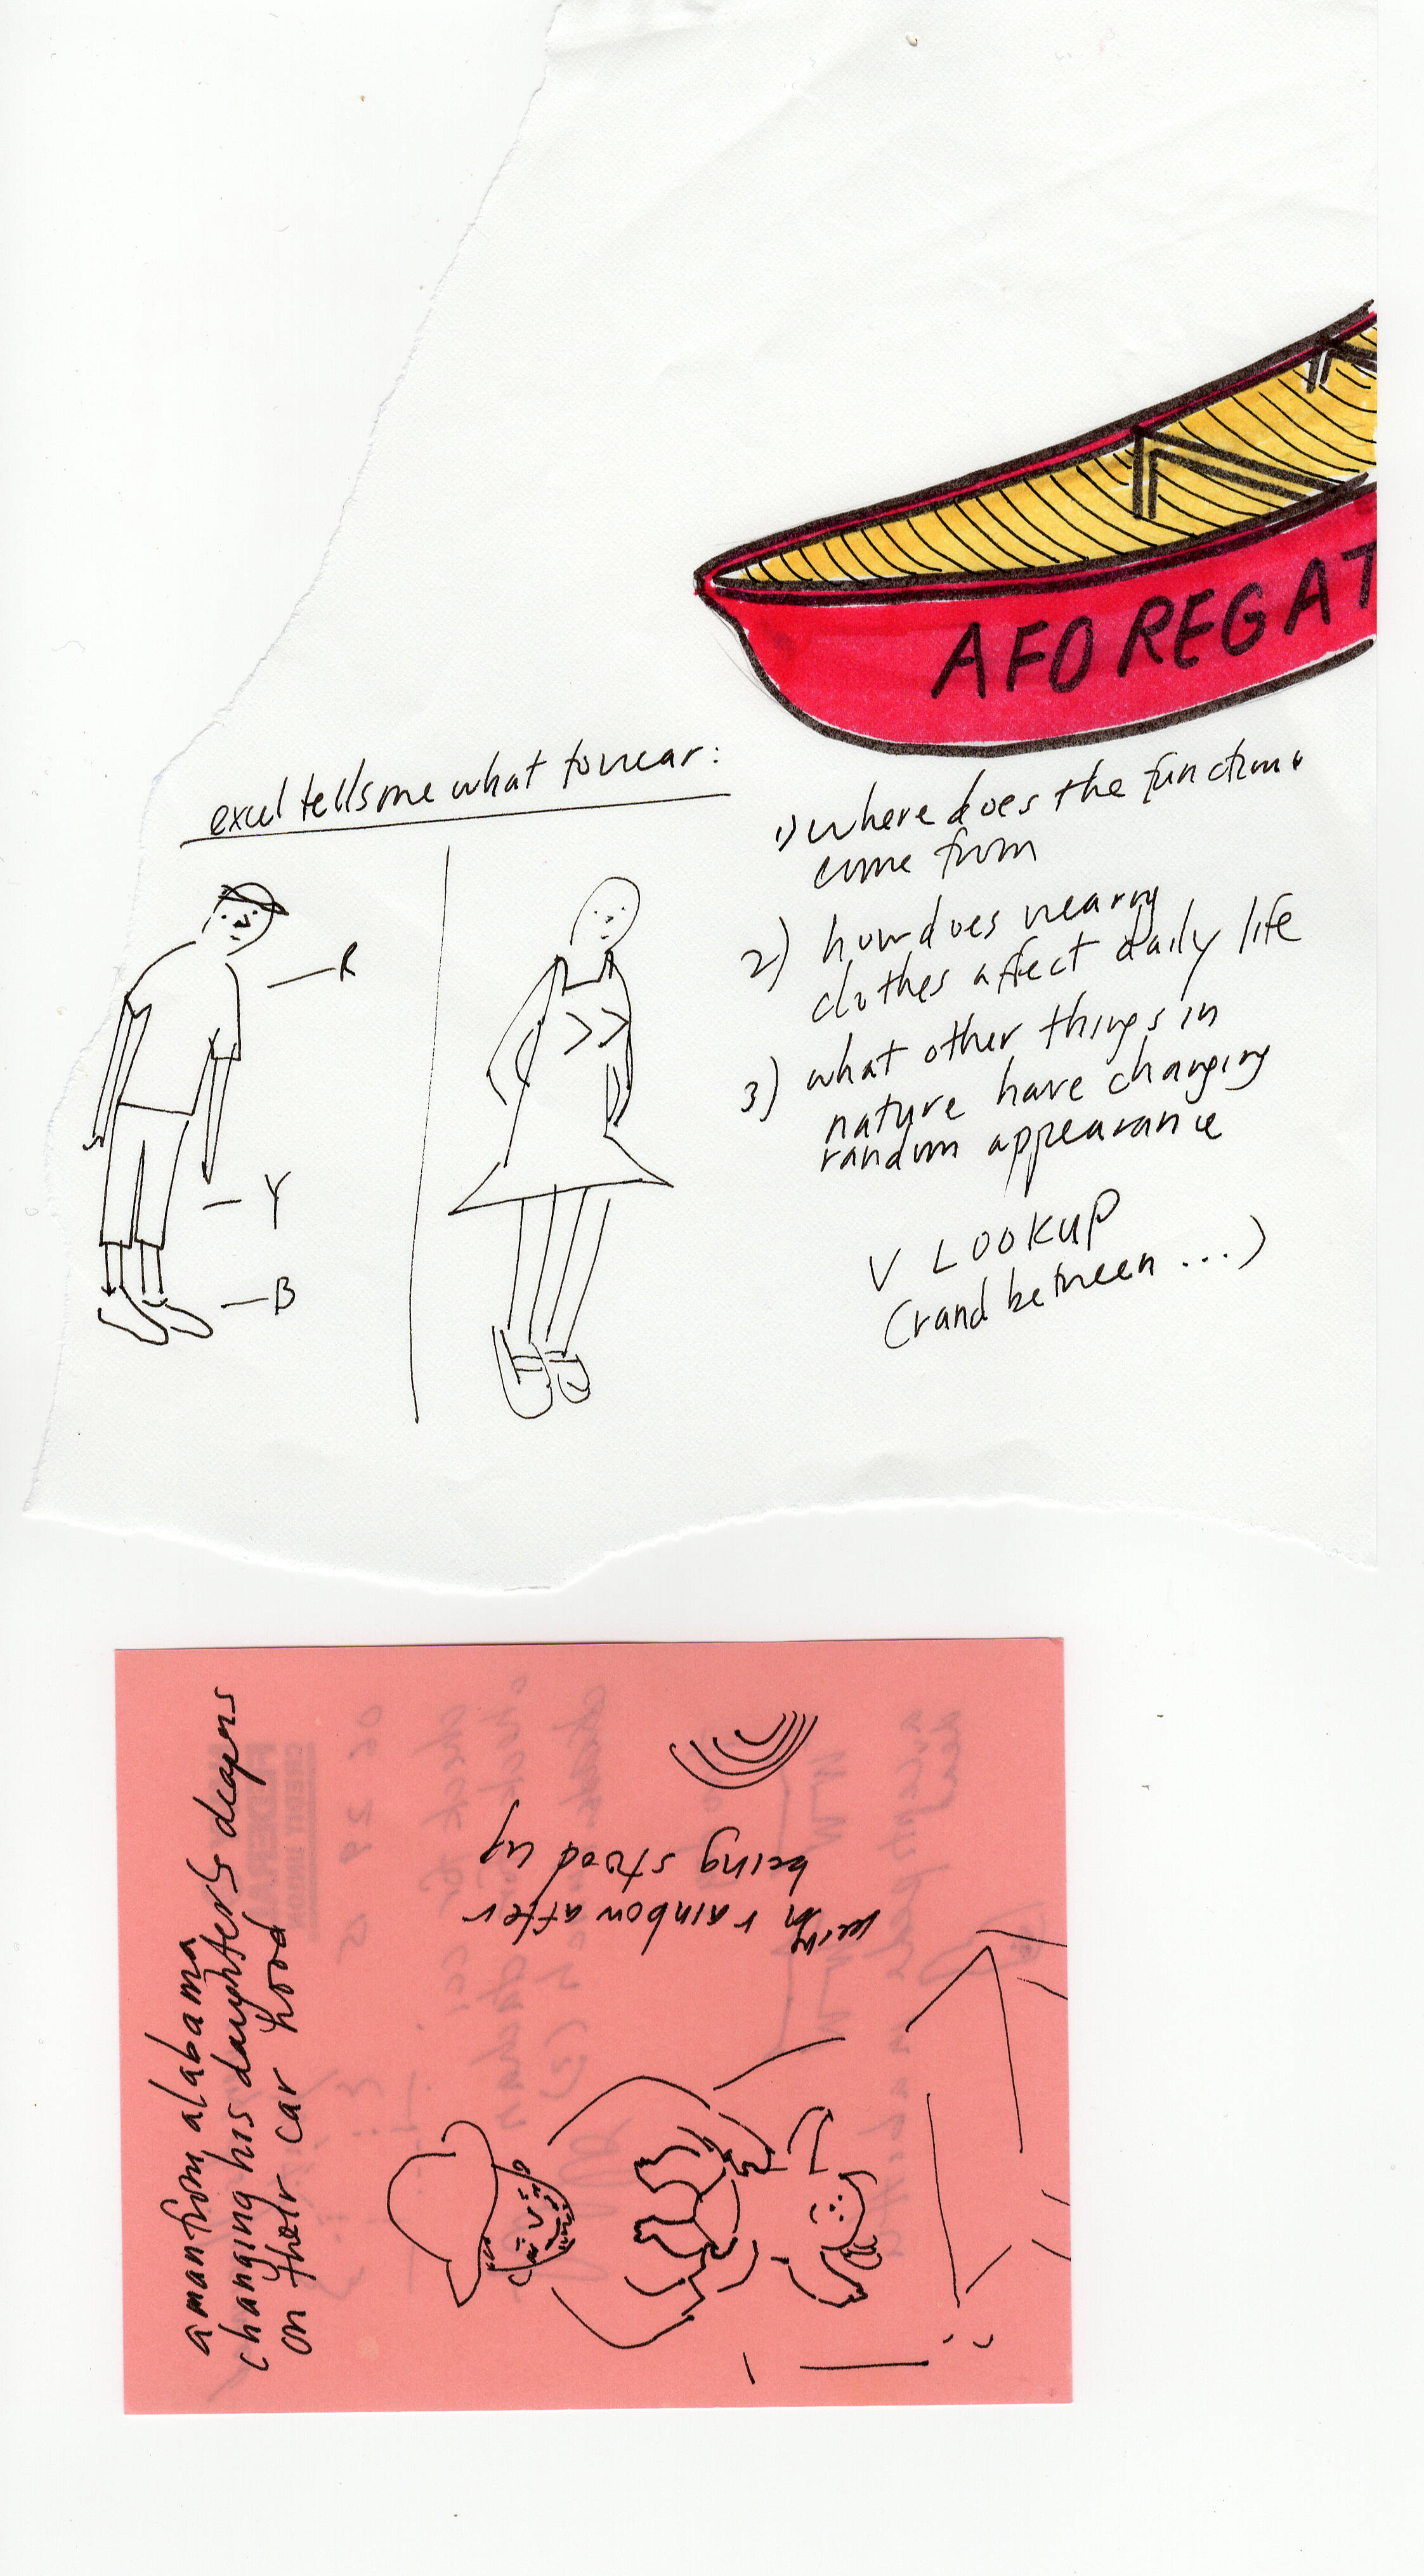 AFOREGAT
excel tells me what to wear:
1) where does the function
come from
2) how does wearing
clothes affect daily life
3) what other things in
nature have changing
random appearance
V LOOKUP
(rand between ...)
R
Y
B
a man from alabama
changing his daughter's diapers
on their car hood
rainbow after
being stood up
CREDIT UNION
FEDERAL
06 29 15